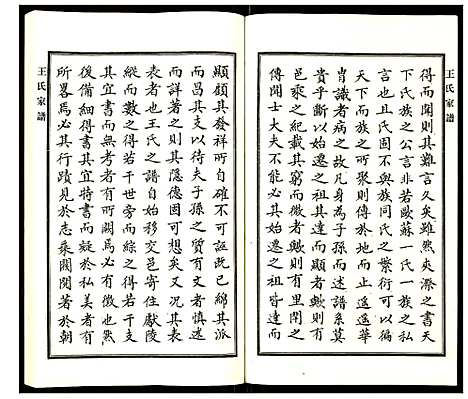 王氏家譜
得而聞則其難言久矣雖然夾漈之書天
下氏族之公言非若歐蘇一氏一族之私
言也且氏固不與族同氏之繁衍可以徧
天下而族之所聚則傳於地而止遥遥華
胄識者病之故凡身為子孫而述譜系莫
貴乎斷以始遷之祖其達而顯者歟則有
邑乘之紀載其窮而微者歟則有里閈之
傳聞士大夫不能必其始遷之祖皆達而
顯顧其發祥所自確不可誣既已綿其派
而昌其支以待夫子孫之賢有文者慎述
而詳著之則其隱德固可想矣又况其表
表者也王氏之譜自始移交邑寄住獻陵
縱而數之得若干世旁而綜之得若干支
其宜書而無考者有之可書而有徵也然
後備細得書其宜特書而疑於私美者有
所畧焉必其行蹟見於志乘閥閱著於朝
王氏家譜